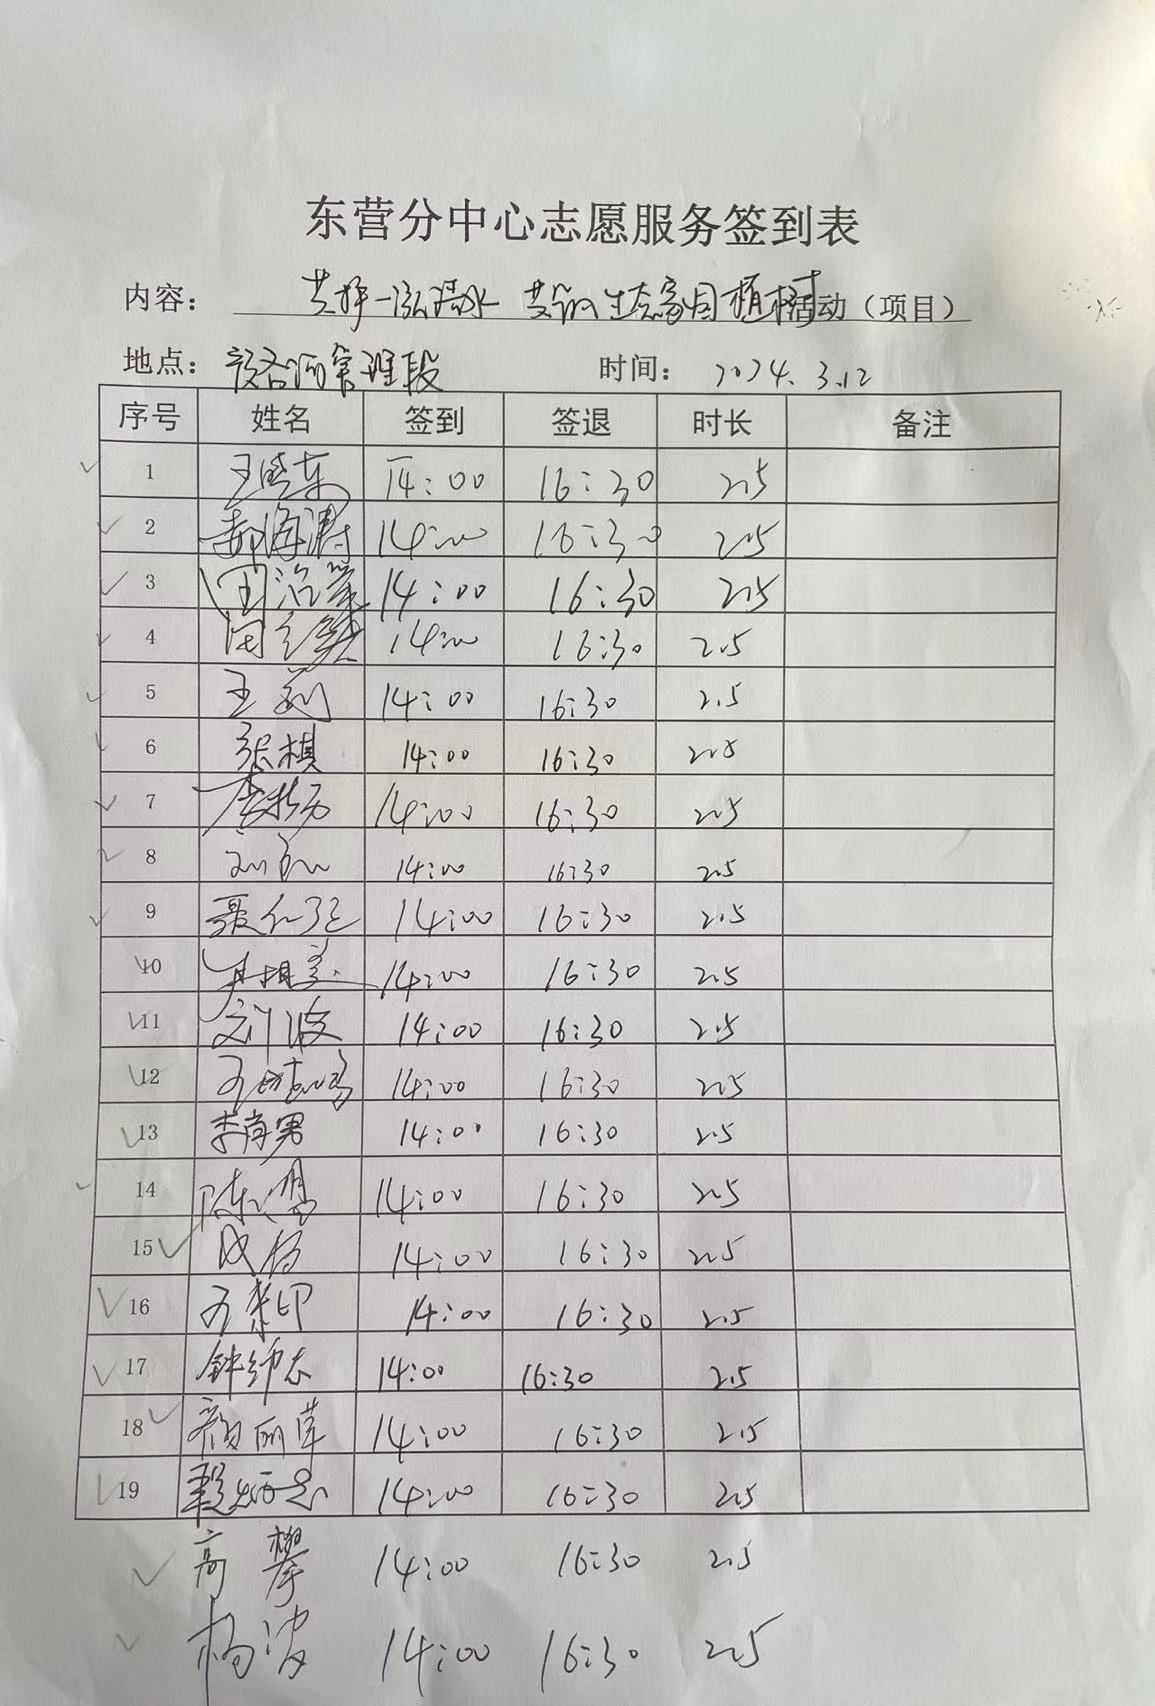 东营分中心志愿服务签到表
内容： 共护一泓清水 共筑生态家园植树活动（项目）
地点： 管理段 时间： 2024.3.12
序号 姓名 签到 签退 时长 备注
1 王晓东 14:00 16:30 2.5
2 郝海涛 14:00 16:30 2.5
3 14:00 16:30 2.5
4 14:00 16:30 2.5
5 王莉 14:00 16:30 2.5
6 张棋 14:00 16:30 2.5
7 14:00 16:30 2.5
8 14:00 16:30 2.5
9 14:00 16:30 2.5
10 14:00 16:30 2.5
11 刘波 14:00 16:30 2.5
12 14:00 16:30 2.5
13 李肖男 14:00 16:30 2.5
14 14:00 16:30 2.5
15 14:00 16:30 2.5
16 14:00 16:30 2.5
17 14:00 16:30 2.5
18 颜丽草 14:00 16:30 2.5
19 14:00 16:30 2.5
高攀 14:00 16:30 2.5
杨波 14:00 16:30 2.5